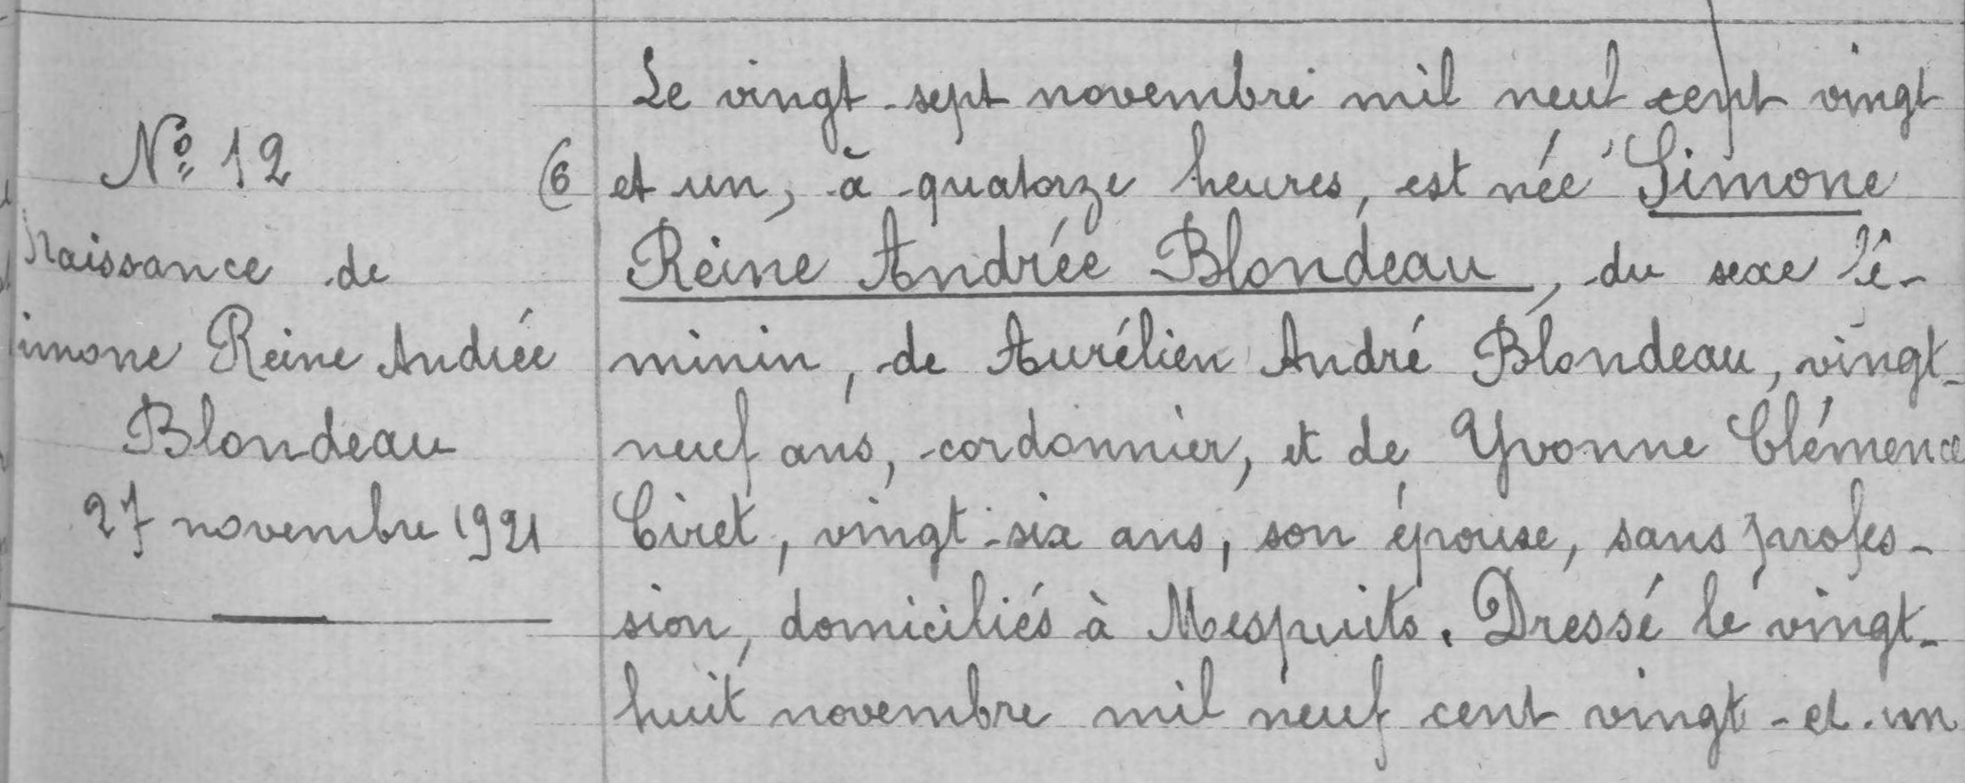 Nº 12
Naissance de
imone Reine Andrée
Blondeau
27 novembre 1921
6
Le vingt-sept novembre mil neuf cent vingt
et un, à quatorze heures, est née Simone
Reine Andrée Blondeau, du sexe fé-
minin, de Aurélien André Blondeau, vingt-
neuf ans, cordonnier, et de Yvonne Clémence
Ciret, vingt-six ans, son épouse, sans profes-
sion, domiciliés à Mespuits. Dressé le vingt-
huit novembre mil neuf cent vingt-et-un